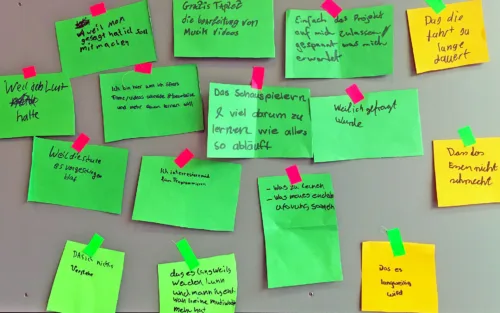 Weil man
gesagt hat ich soll
mitmachen
Gratis
die bearbeitung von
Musik videos
Einfach das Projekt
auf mich zulassen/
gespannt was mich
erwartet
Das die
fahrt zu
lange
dauert
Weil ich Lust
hatte
Ich bin hier um
und mehr lernen will
Das Schauspielern
& viel darum zu
lernen wie alles
so abläuft
Weil ich gefragt
wurde
Weil die Schule
es vorgeschlagen
hat
Ich interessiere mich
fürs Programmieren
- Was zu lernen
- Was neues
Erfahrung sammeln
Das das
Essen nicht
schmeckt
Das ich nichts
Verstehe
das es langweilig
werden kann
und man irgendwann
keine motivation
mehr hat
Das es
langweilig
wird